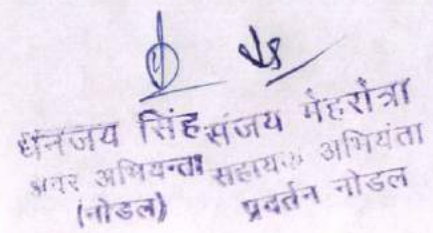 धनन्जय सिंह
अवर अभियन्ता
(नोडल)
संजय मेहरोत्रा
सहायक अभियंता
प्रवर्तन नोडल